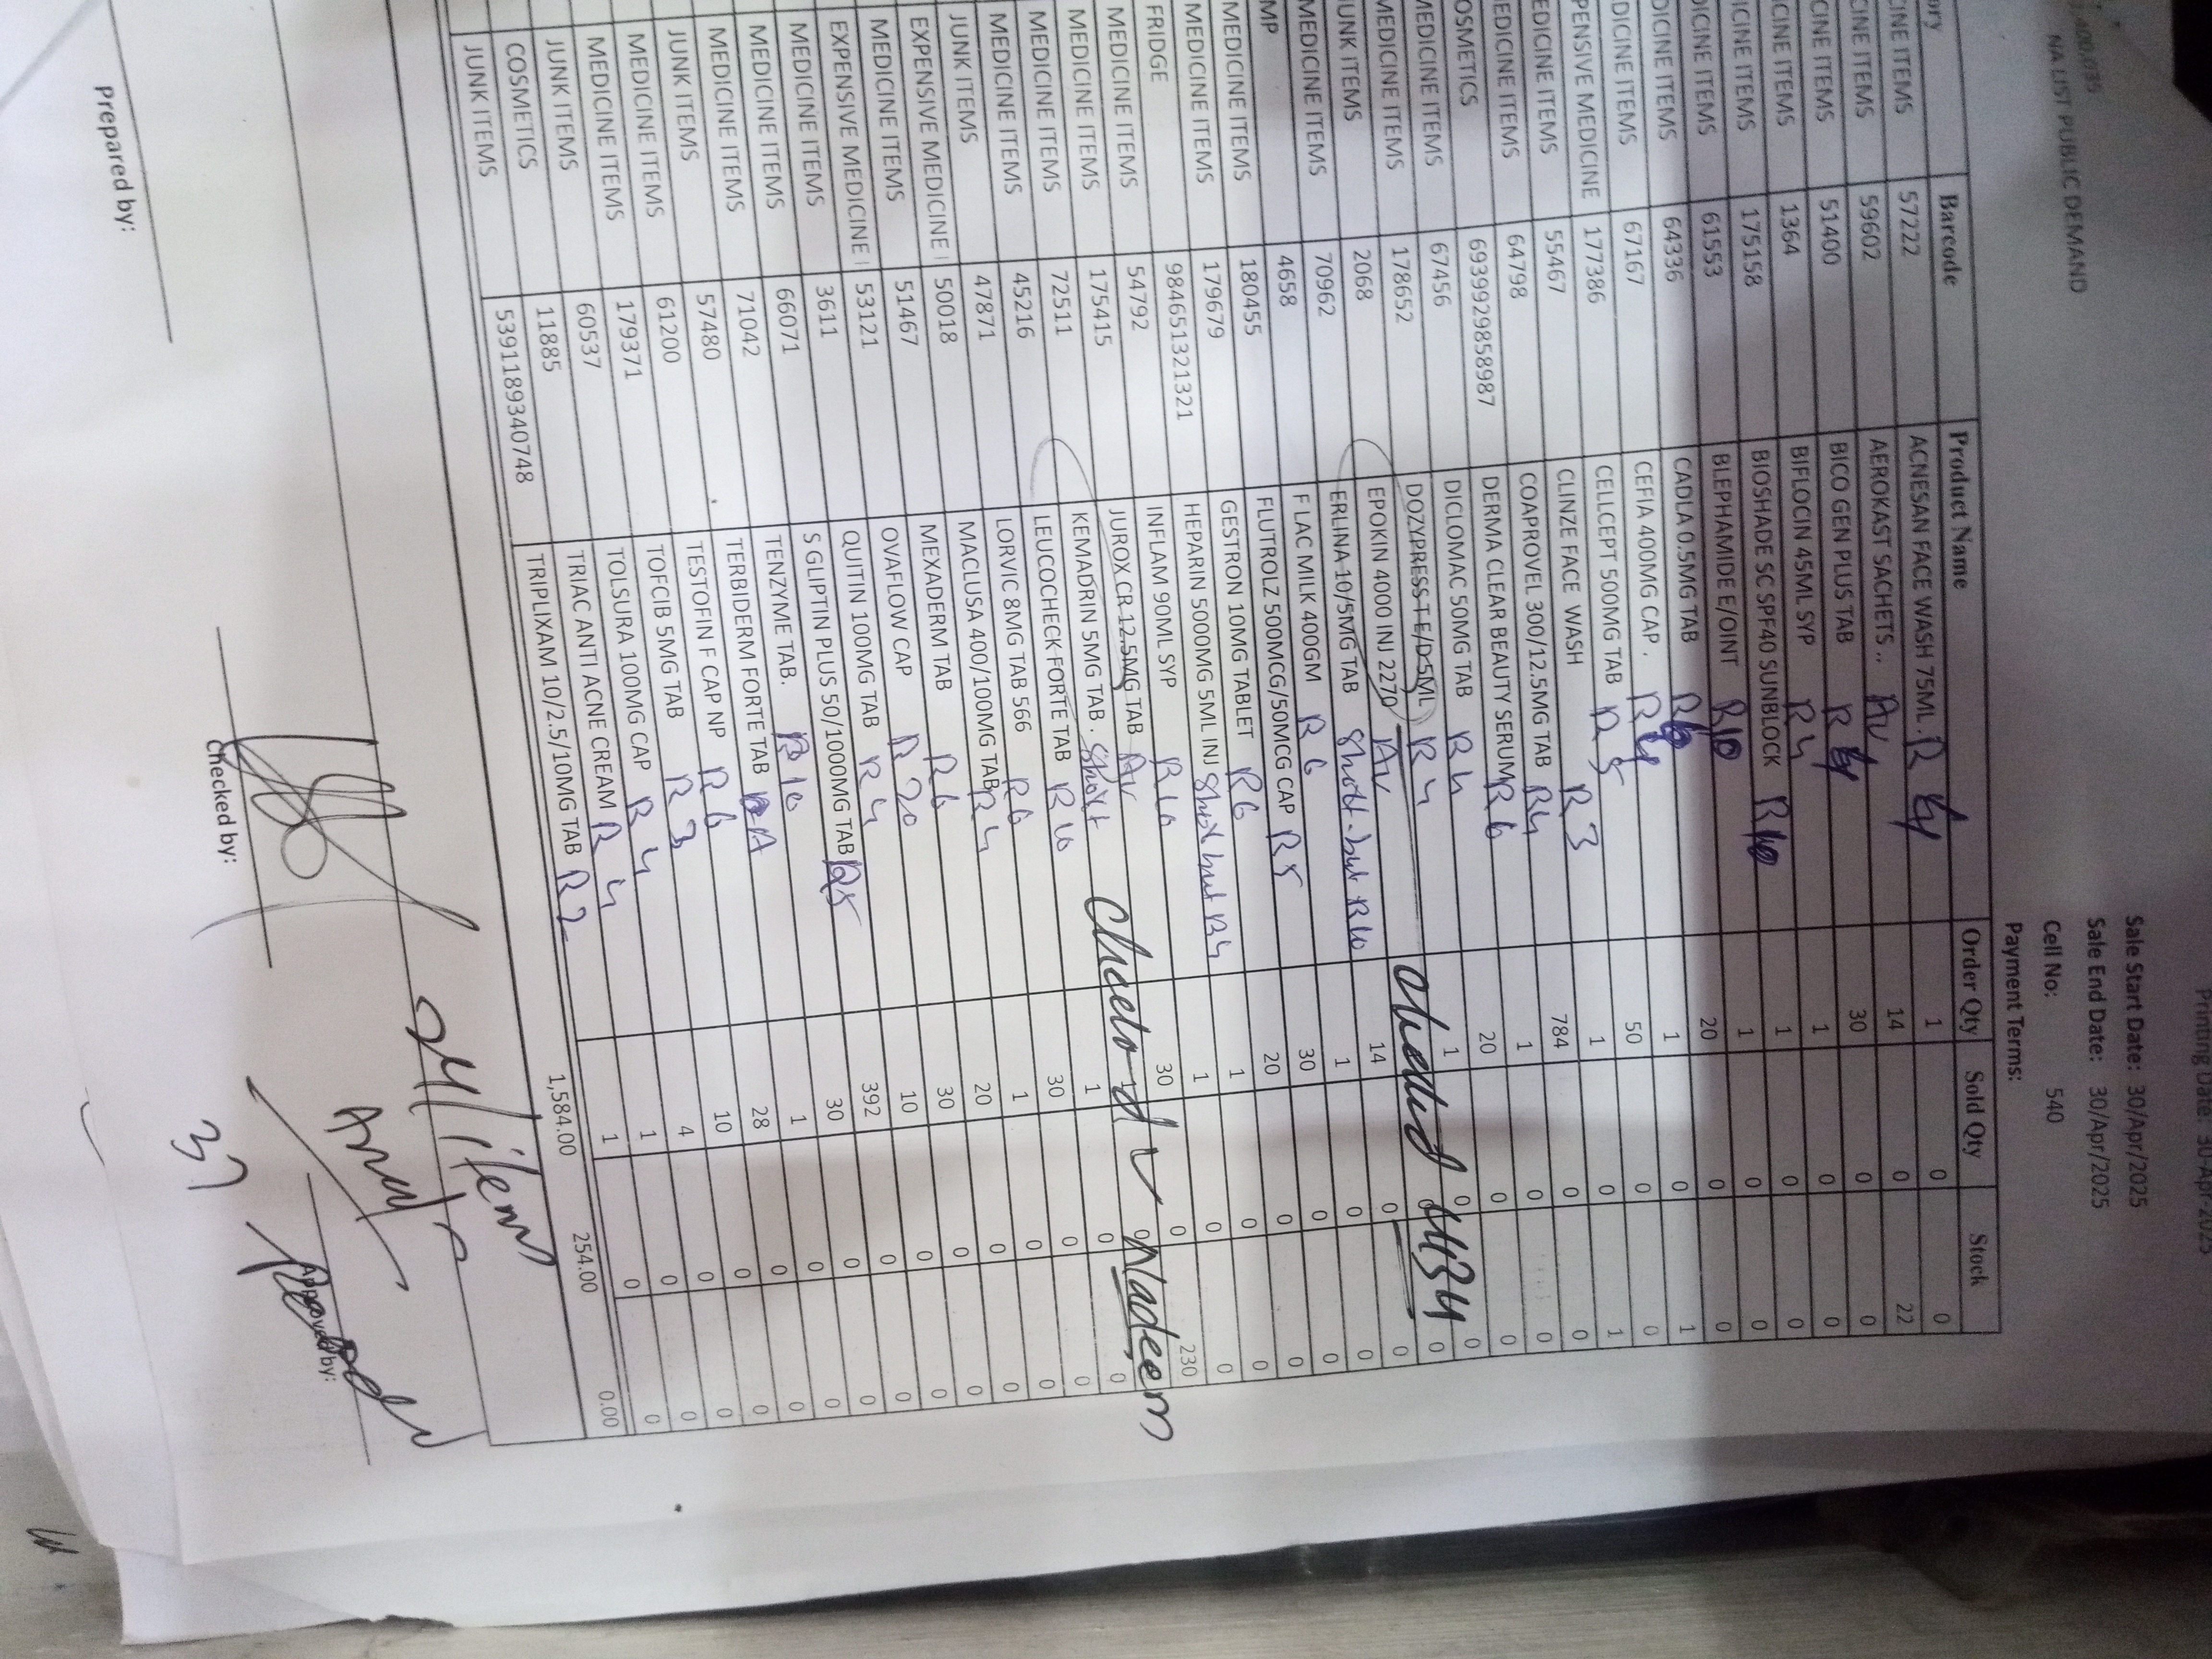 NA LIST PUBLIC DEMAND
Printing Date: 30-Apr-2025
Sale Start Date: 30/Apr/2025
Sale End Date: 30/Apr/2025
Cell No: 540
Payment Terms:
Barcode Product Name Order Qty Sold Qty Stock
CINE ITEMS 57222 ACNESAN FACE WASH 75ML . R 4 1 0 0
CINE ITEMS 59602 AEROKAST SACHETS .. Av 14 0 22
CINE ITEMS 51400 BICO GEN PLUS TAB R 30 0 0
CINE ITEMS 1364 BIFLOCIN 45ML SYP R 4 1 0 0
ICINE ITEMS 175158 BIOSHADE SC SPF40 SUNBLOCK R10 1 0 0
DICINE ITEMS 61553 BLEPHAMIDE E/OINT R10 1 0 0
DICINE ITEMS 64336 CADLA 0.5MG TAB R 20 0 0
DICINE ITEMS 67167 CEFIA 400MG CAP . R 4 1 0 1
PENSIVE MEDICINE 177386 CELLCEPT 500MG TAB R 5 50 0 0
EDICINE ITEMS 55467 CLINZE FACE WASH R 3 1 0 1
EDICINE ITEMS 64798 COAPROVEL 300/12.5MG TAB R4 784 0 0
OSMETICS 6939929858987 DERMA CLEAR BEAUTY SERUM R 6 1 0 0
MEDICINE ITEMS 67456 DICLOMAC 50MG TAB R 4 20 0 0
MEDICINE ITEMS 178652 DOZYPRESS-T E/D 5ML R 4 1 0 0
UNK ITEMS 2068 EPOKIN 4000 INJ 2270 Av 0 0
MEDICINE ITEMS 70962 ERLINA 10/5MG TAB Short - but R10 14 0 0
MP 4658 F LAC MILK 400GM R 6 1 0 0
MEDICINE ITEMS 180455 FLUTROLZ 500MCG/50MCG CAP R 5 30 0 0
MEDICINE ITEMS 179679 GESTRON 10MG TABLET R6 20 0 0
FRIDGE 984651321321 HEPARIN 5000MG 5ML INJ Short but R4 1 0 0
MEDICINE ITEMS 54792 INFLAM 90ML SYP R 10 1 0 0
MEDICINE ITEMS 175415 JUROX CR 12.5MG TAB Av 30 0 230
MEDICINE ITEMS 72511 KEMADRIN 5MG TAB . Short 0 0
MEDICINE ITEMS 45216 LEUCOCHECK FORTE TAB R 10 1 0 0
JUNK ITEMS 47871 LORVIC 8MG TAB 566 R6 30 0 0
EXPENSIVE MEDICINE I 50018 MACLUSA 400/100MG TAB R 4 1 0 0
MEDICINE ITEMS 51467 MEXADERM TAB R 6 20 0 0
EXPENSIVE MEDICINE I 53121 OVAFLOW CAP R 20 30 0 0
MEDICINE ITEMS 3611 QUITIN 100MG TAB R 4 10 0 0
MEDICINE ITEMS 66071 S GLIPTIN PLUS 50/1000MG TAB R5 392 0 0
MEDICINE ITEMS 71042 TENZYME TAB. R 10 30 0 0
JUNK ITEMS 57480 TERBIDERM FORTE TAB 1 0 0
MEDICINE ITEMS 61200 TESTOFIN F CAP NP R 6 28 0 0
MEDICINE ITEMS 179371 TOFCIB 5MG TAB R 3 10 0 0
JUNK ITEMS 60537 TOLSURA 100MG CAP R 4 4 0 0
COSMETICS 11885 TRIAC ANTI ACNE CREAM R 4 1 0 0
JUNK ITEMS 5391189340748 TRIPLIXAM 10/2.5/10MG TAB R 2 1 0 0
1,584.00 254.00 0.00
Nadeem
24 items
37
Prepared by:
Checked by:
Approved by: